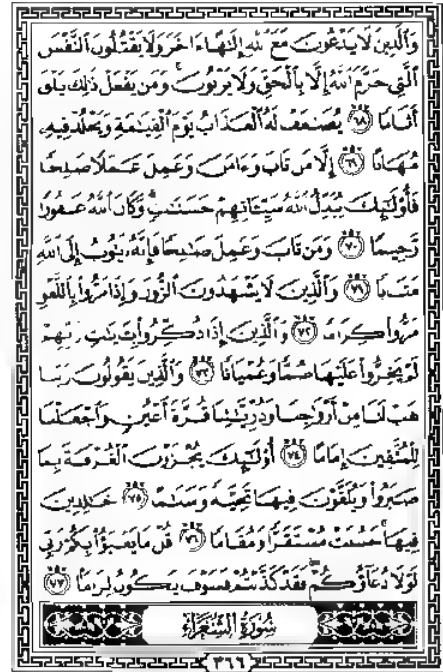 وَٱلَّذِينَ لَا يَدْعُونَ مَعَ ٱللَّهِ إِلَٰهًا ءَاخَرَ وَلَا يَقْتُلُونَ ٱلنَّفْسَ
ٱلَّتِي حَرَّمَ ٱللَّهُ إِلَّا بِٱلْحَقِّ وَلَا يَزْنُونَ ۚ وَمَن يَفْعَلْ ذَٰلِكَ يَلْقَ
أَثَامًا ٦٨ يُضَٰعَفْ لَهُ ٱلْعَذَابُ يَوْمَ ٱلْقِيَٰمَةِ وَيَخْلُدْ فِيهِۦ
مُهَانًا ٦٩ إِلَّا مَن تَابَ وَءَامَنَ وَعَمِلَ عَمَلًا صَٰلِحًا
فَأُو۟لَٰٓئِكَ يُبَدِّلُ ٱللَّهُ سَيِّـَٔاتِهِمْ حَسَنَٰتٍ ۗ وَكَانَ ٱللَّهُ غَفُورًا
رَّحِيمًا ٧٠ وَمَن تَابَ وَعَمِلَ صَٰلِحًا فَإِنَّهُۥ يَتُوبُ إِلَى ٱللَّهِ
مَتَابًا ٧١ وَٱلَّذِينَ لَا يَشْهَدُونَ ٱلزُّورَ وَإِذَا مَرُّوا۟ بِٱللَّغْوِ
مَرُّوا۟ كِرَامًا ٧٢ وَٱلَّذِينَ إِذَا ذُكِّرُوا۟ بِـَٔايَٰتِ رَبِّهِمْ
لَمْ يَخِرُّوا۟ عَلَيْهَا صُمًّا وَعُمْيَانًا ٧٣ وَٱلَّذِينَ يَقُولُونَ رَبَّنَا
هَبْ لَنَا مِنْ أَزْوَٰجِنَا وَذُرِّيَّٰتِنَا قُرَّةَ أَعْيُنٍ وَٱجْعَلْنَا
لِلْمُتَّقِينَ إِمَامًا ٧٤ أُو۟لَٰٓئِكَ يُجْزَوْنَ ٱلْغُرْفَةَ بِمَا
صَبَرُوا۟ وَيُلَقَّوْنَ فِيهَا تَحِيَّةً وَسَلَٰمًا ٧٥ خَٰلِدِينَ
فِيهَا ۚ حَسُنَتْ مُسْتَقَرًّا وَمُقَامًا ٧٦ قُلْ مَا يَعْبَؤُا۟ بِكُمْ رَبِّي
لَوْلَا دُعَآؤُكُمْ ۖ فَقَدْ كَذَّبْتُمْ فَسَوْفَ يَكُونُ لِزَامًۢا ٧٧
سُورَةُ الشُّعَرَاءِ
٣٦٦